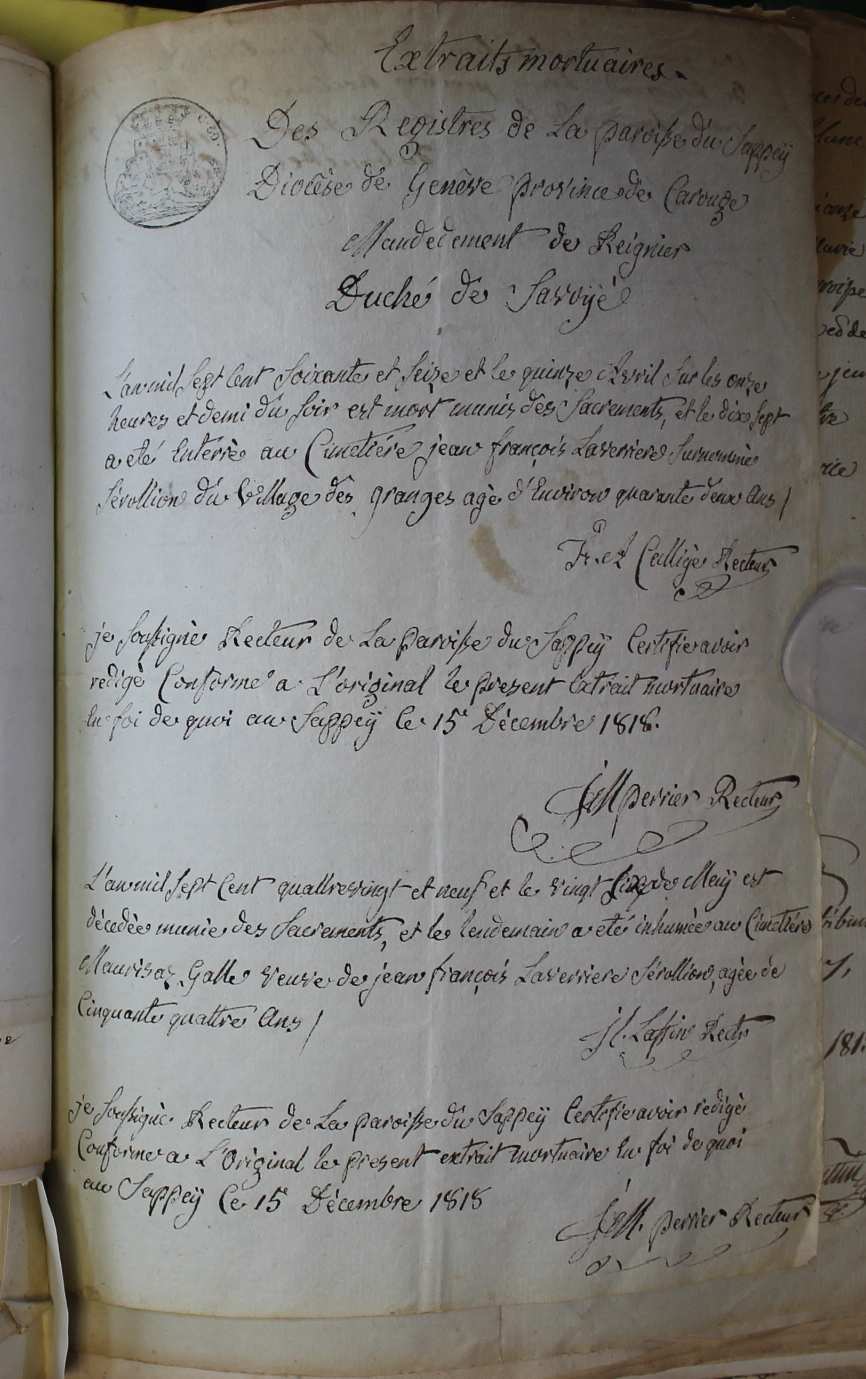 Extraits mortuaires.
Des Registres de La paroisse du Sappeÿ
Diocèse de Genève province de Carouge
Mandedement de Reignier
Duché de Savoÿe
L'an mil sept cent soixante et seize et le quinze Avril sur les onze
heures et demi du soir est mort munis des Sacrements, et le dix sept
a eté entérré au Cimetiére jean françois Laverriere Surnommé
Sérollion du village des granges agé d'Environ quarante deux Ans /
Callige Recteur
je soussigné Recteur de La paroisse du Sappeÿ Certifie avoir
redigé Conforme a L'original le present extrait mortuaire
en foi de quoi au Sappeÿ le 15e Décembre 1818.
perrier Recteur
L'an mil sept cent quattrevingt et neuf et le vingt six de Maÿ est
décedée munie des Sacrements, et le lendemain a eté inhumée au Cimetiére
Maurisaz Galle veuve de jean françois Laverriere Sérollion, agée de
Cinquante quattre Ans /
Laffin Rectr
je soussigné Recteur de La paroisse du Sappeÿ Certifie avoir redigé
Conforme a L'Original le present extrait mortuaire en foi de quoi
au Sappeÿ le 15e Décembre 1818
perrier Recteur